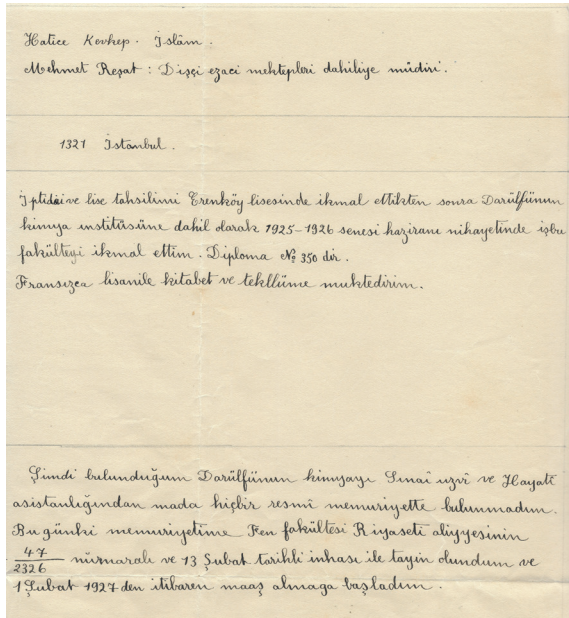 Hatice Kevkep. İslâm.
Mehmet Reşat : Dişçi ezaci mektepleri dahiliye müdiri.
1321 İstanbul.
İptidaive lise tahsilimi Erenköy lisesinde ikmal ettikten sonra Darülfünun
kimya institüsüne dahil olarak 1925-1926 senesi haziranı nihayetinde işbu
fakülteyi ikmal ettim. Diploma № 350 dir.
Fransızca lisanile kitabet ve tekllüme muktedirim.
Şimdi bulunduğum Darülfünun kimyayı Sınaî uzvî ve Hayatî
asistanlığından mada hiçbir resmî memuriyette bulunmadım.
Bu günki memuriyetime Fen fakültesi Riyaseti aliyyesinin
47/2326 nümaralı ve 13 Şubat tarihli inhası ile tayin olundum ve
1 Şubat 1927 den itibaren maaş almaga başladım.